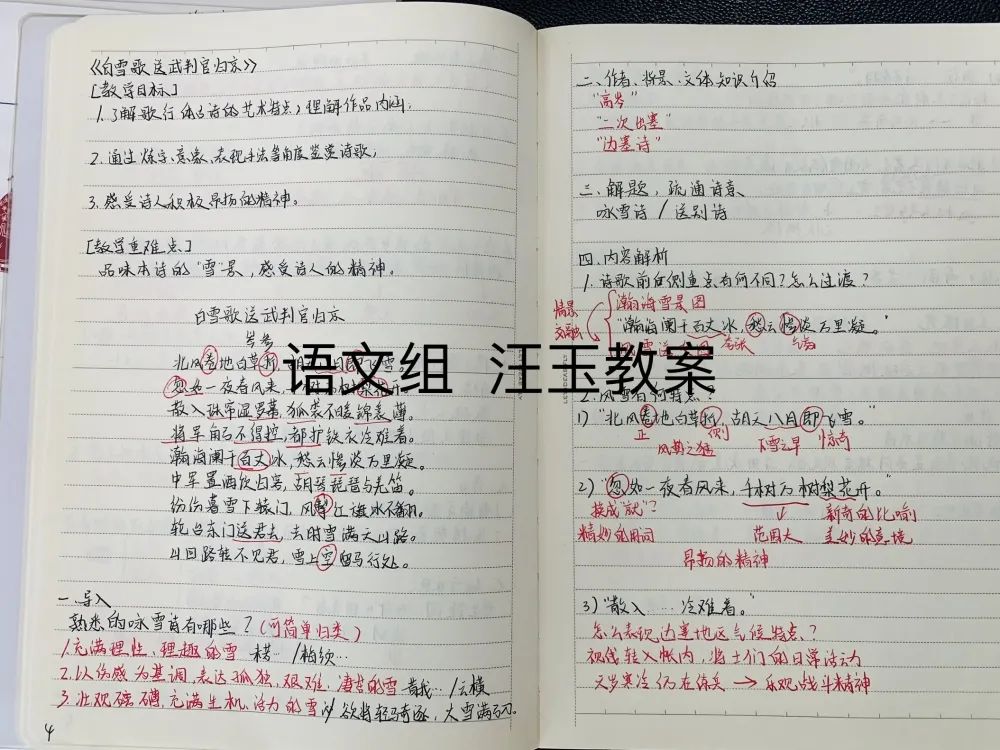 《白雪歌送武判官归京》
[教学目标]
1.了解歌行体诗的艺术特点,理解作品内涵;
2.通过炼字、意象、表现手法等角度鉴赏诗歌;
3.感受诗人积极昂扬的精神。
[教学重难点]
品味本诗的"雪"景,感受诗人的精神。
白雪歌送武判官归京
岑参
北风卷地白草折,
忽如一夜春风来,
散入珠帘湿罗幕,狐裘不暖锦衾薄。
将军角弓不得控,都护铁衣冷难着。
瀚海阑干百丈冰,愁云惨淡万里凝。
中军置酒饮归客,胡琴琵琶与羌笛。
纷纷暮雪下辕门,风掣红旗冻不翻。
轮台东门送君去,去时雪满天山路。
山回路转不见君,雪上空留马行处。
一、导入
熟悉的咏雪诗有哪些?(可简单归类)
1.充满理性、理趣的雪
2.以伤感为基调,表达孤独、艰难、凄苦的雪 昔我…/云横
3.壮观磅礴,充满生机、活力的雪 欲将轻骑逐,大雪满弓刀。
4
二、作者、背景、文体知识介绍
"高岑"
"二次出塞"
"边塞诗"
三、解题,疏通诗意
咏雪诗/送别诗
四、内容解析
1.诗歌前后侧重点有何不同?怎么过渡?
情景交融
瀚海雪景图
"瀚海阑干百丈冰,愁云惨淡万里凝。"
夸张
语文组 汪玉教案
1)"北风卷地白草折,胡天八月即飞雪。"
正 侧
风势之猛 下雪之早 惊奇
2)"忽如一夜春风来,千树万树梨花开。"
换成"就"? 新奇的比喻
精妙的用词 范围大 美妙的意境
昂扬的精神
3)"散入…冷难着。"
怎么表现边塞地区气候特点?
视线转入帐内,将士们的日常活动
天岁寒冷,仍在练兵→乐观战斗精神